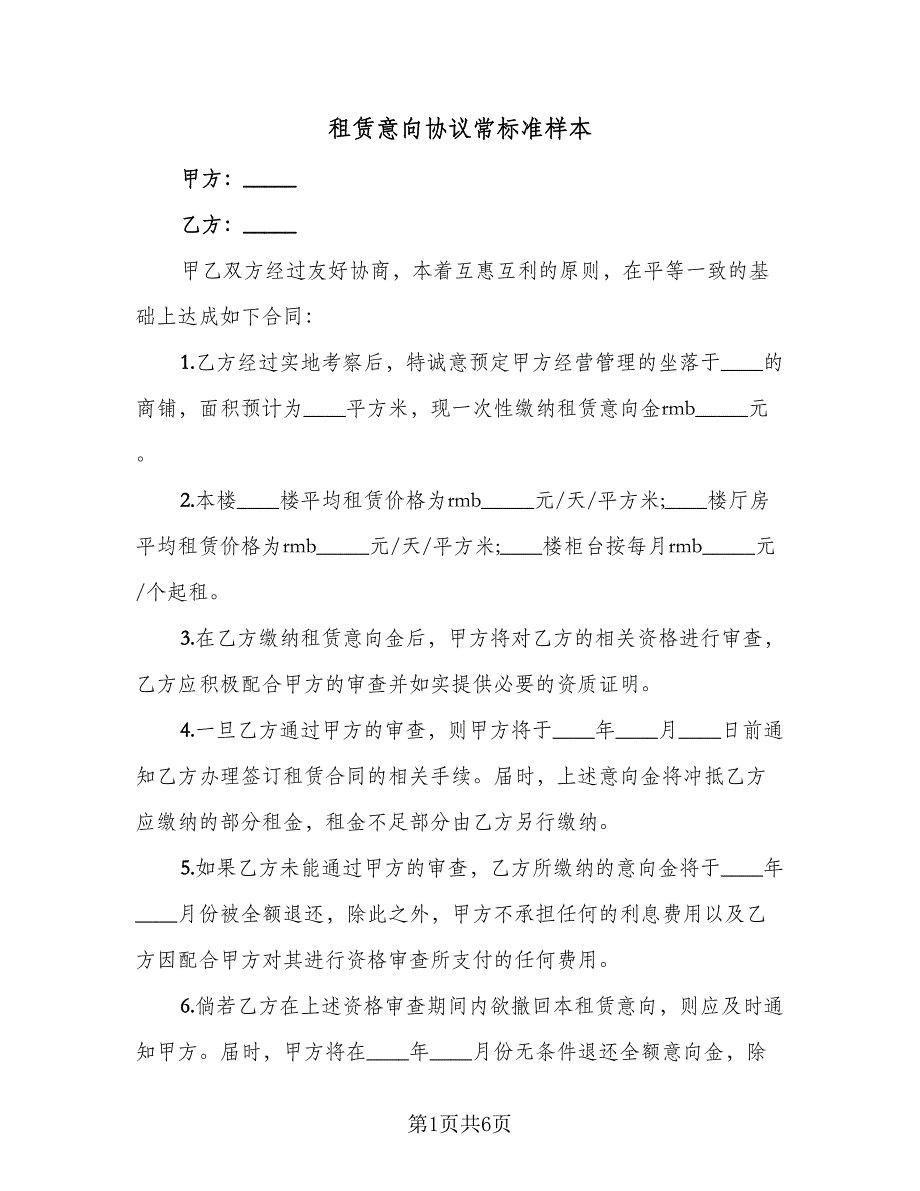 租赁意向协议常标准样本
甲方：_____
乙方：_____
甲乙双方经过友好协商，本着互惠互利的原则，在平等一致的基
础上达成如下合同：
1.乙方经过实地考察后，特诚意预定甲方经营管理的坐落于____的
商铺，面积预计为____平方米，现一次性缴纳租赁意向金rmb_____元
。
2.本楼____楼平均租赁价格为rmb_____元/天/平方米;____楼厅房
平均租赁价格为rmb_____元/天/平方米;____楼柜台按每月rmb_____元
/个起租。
3.在乙方缴纳租赁意向金后，甲方将对乙方的相关资格进行审查，
乙方应积极配合甲方的审查并如实提供必要的资质证明。
4.一旦乙方通过甲方的审查，则甲方将于____年____月____日前通
知乙方办理签订租赁合同的相关手续。届时，上述意向金将冲抵乙方
应缴纳的部分租金，租金不足部分由乙方另行缴纳。
5.如果乙方未能通过甲方的审查，乙方所缴纳的意向金将于____年
____月份被全额退还，除此之外，甲方不承担任何的利息费用以及乙
方因配合甲方对其进行资格审查所支付的任何费用。
6.倘若乙方在上述资格审查期间内欲撤回本租赁意向，则应及时通
知甲方。届时，甲方将在____年____月份无条件退还全额意向金，除
第1页共6页